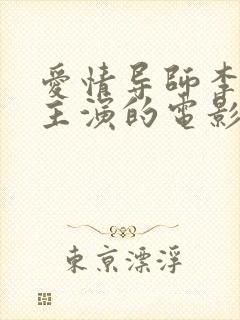 愛情导師李
主演的電影
東京漂浮